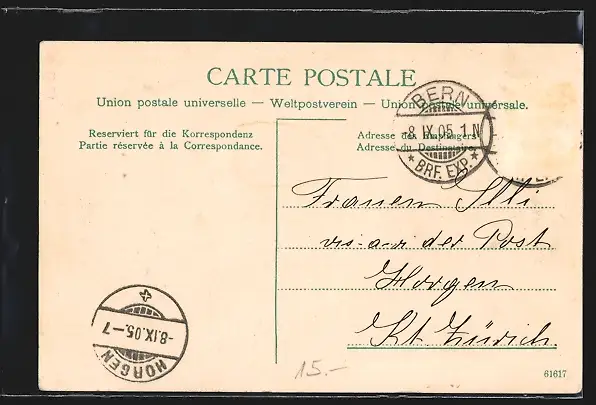 CARTE POSTALE
Union postale universelle — Weltpostverein — Union postale universale.
Reserviert für die Korrespondenz
Partie réservée à la Correspondance.
Adresse des Empfängers
Adresse du Destinataire
BERN
-8.IX.05.1N
★ BRF. EXP. ★
Frauen Illi
vis-a-vis der Post
Horgen
Kt. Zürich.
-8.IX.05.-7
HORGEN
15.-
61617